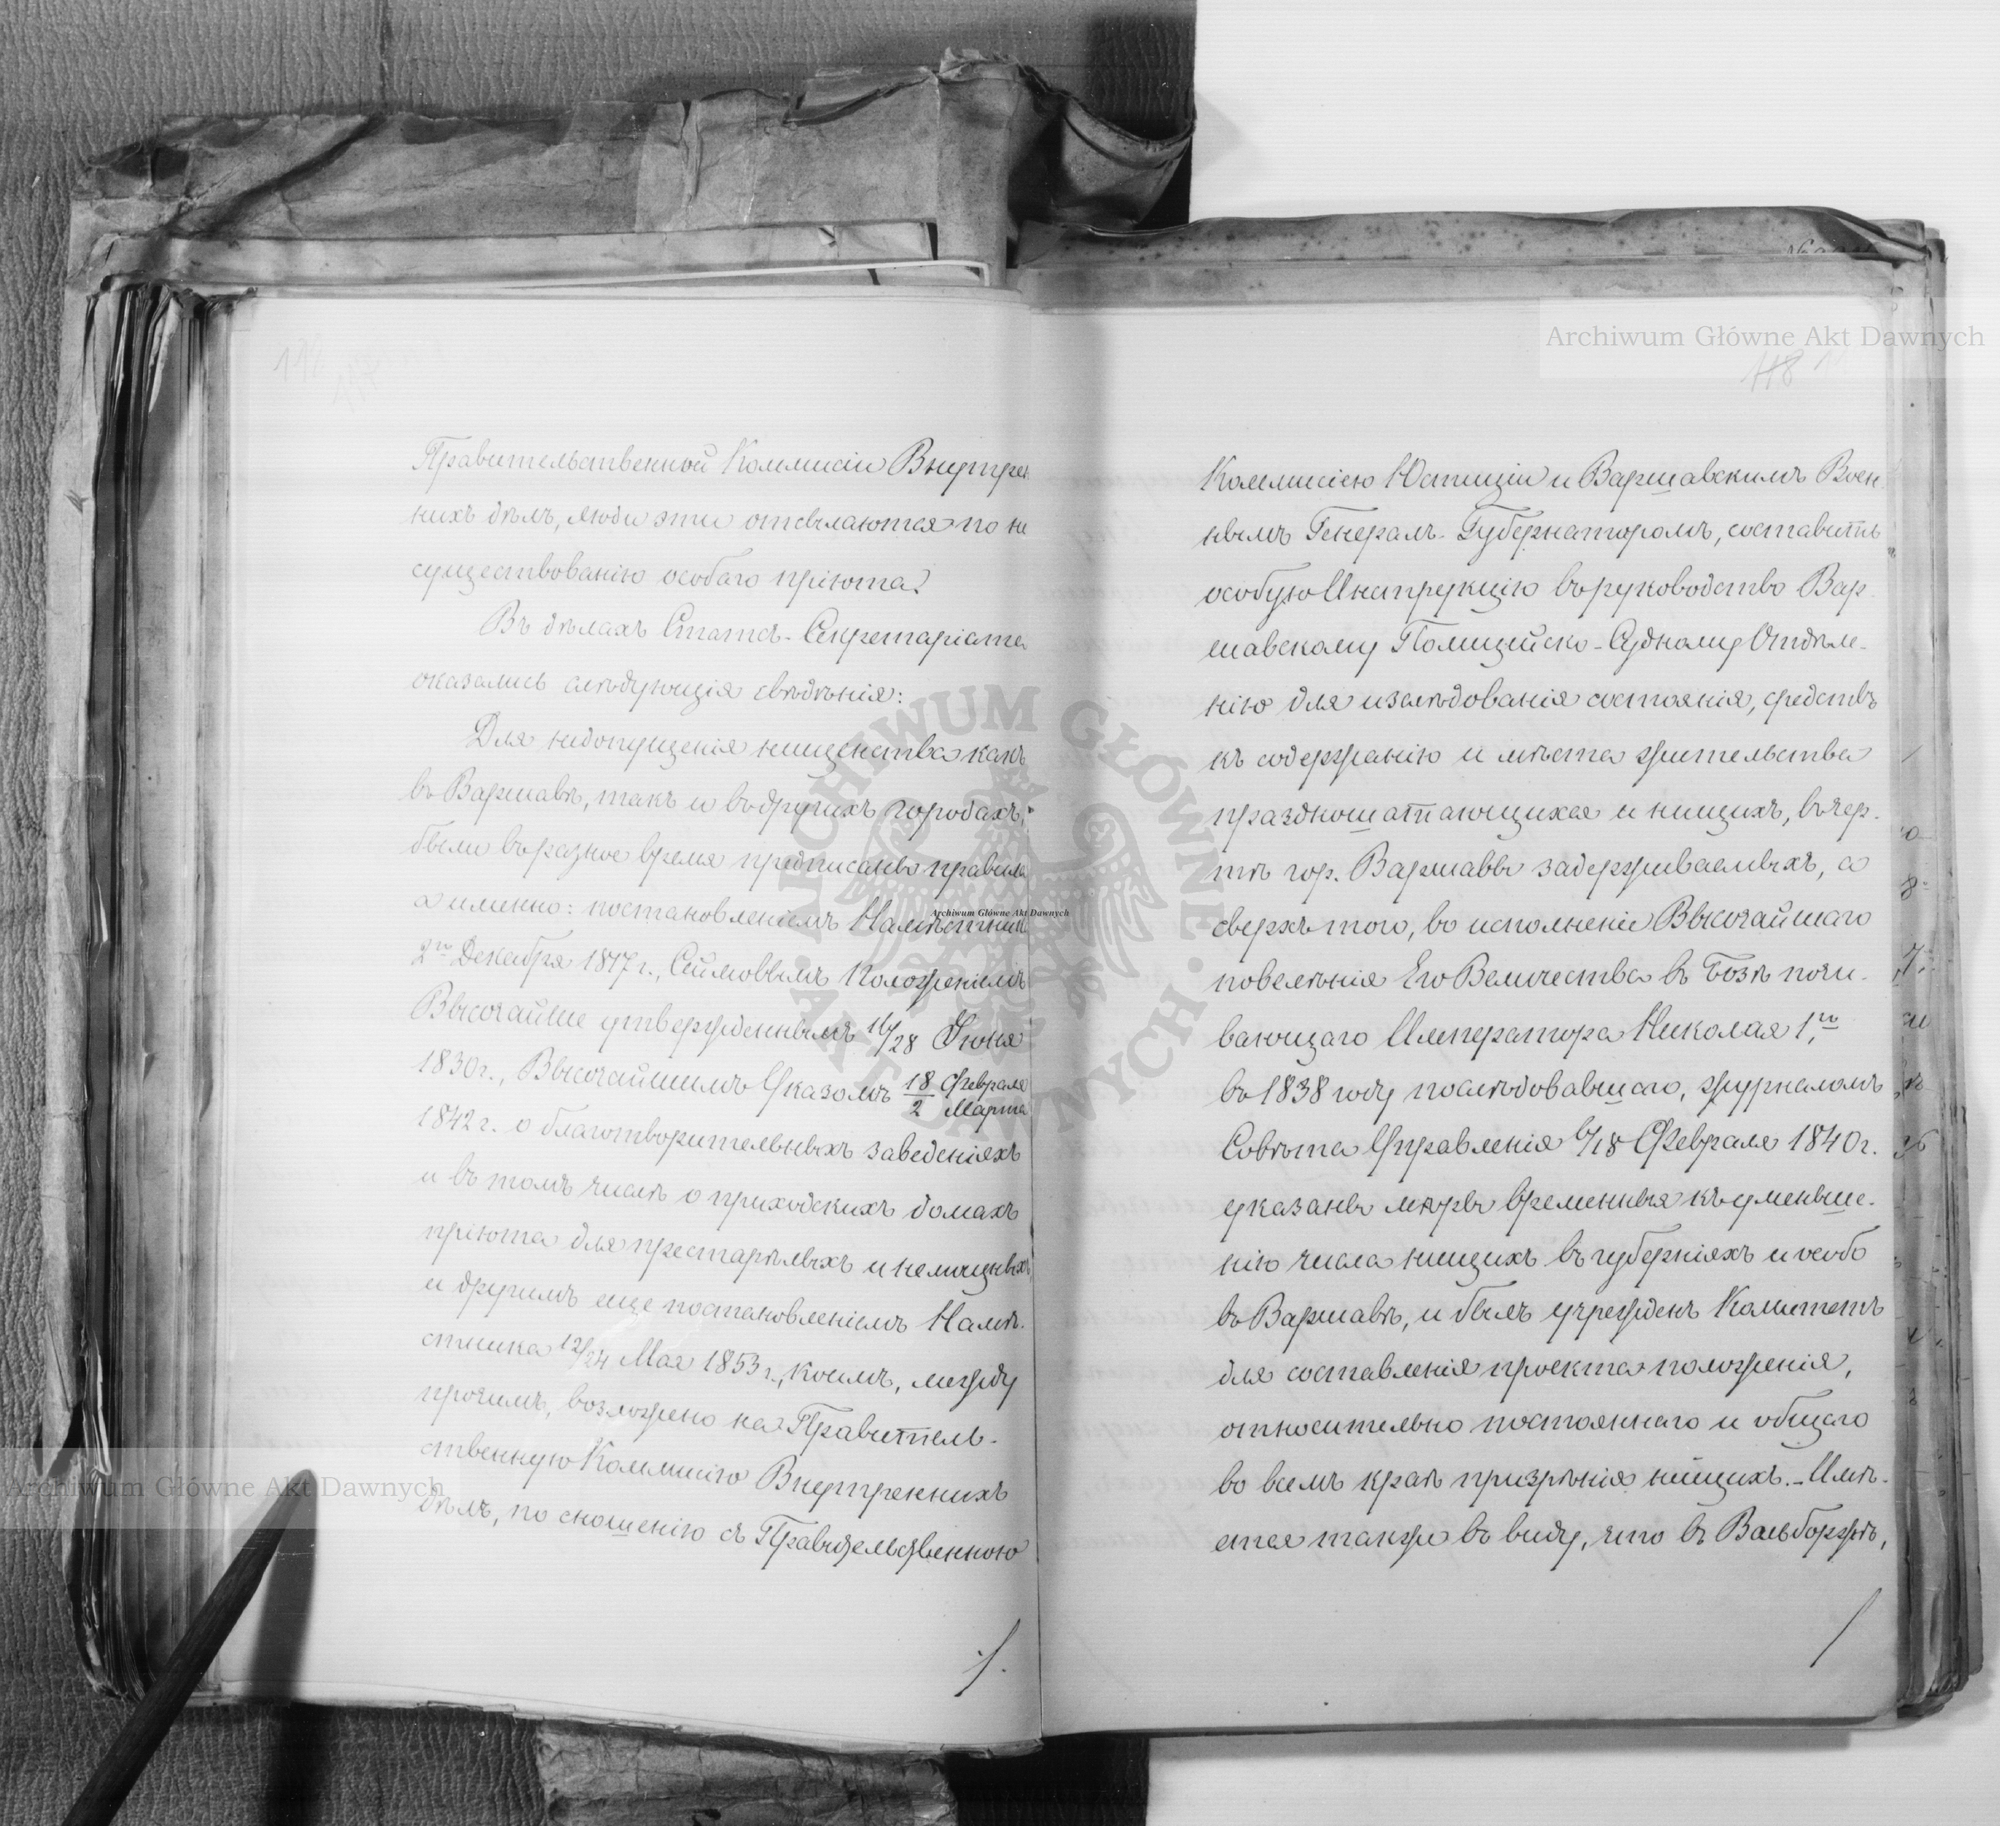 Правительственной Коммисіи Внутрен
нихъ дѣлъ, люди эти отсылаются по не
существованію особаго пріюта?
Въ дѣлахъ Статсъ-Секретаріата
оказались слѣдующія свѣдѣнія:
Для недопущенія нищенства какъ
въ Варшавѣ, такъ и въ другихъ городахъ,
были въ разное время предписаны правила
а именно: постановленіемъ Намѣстника
2го Декабря 1817 г., Сеймовымъ Положеніемъ
Высочайше утвержденнымъ 16/28 Іюня
1830 г., Высочайшимъ Указомъ 18 Февраля / 2 Марта
1842 г. о благотворительныхъ заведеніяхъ
и въ томъ числѣ о приходскихъ домахъ
пріюта для престарѣлыхъ и немощныхъ
и другимъ еще постановленіемъ Намѣ-
стника 12/24 Мая 1853 г., коимъ, между
прочимъ, возложено на Правитель-
ственную Коммисію Внутреннихъ
дѣлъ, по сношенію съ Правительственною
118
Коммисіею Юстиціи и Варшавскимъ Воен-
нымъ Генералъ-Губернаторомъ, составить
особую Инструкцію въ руководство Вар-
шавскому Полицейско-Судному Отдѣле-
нію для изслѣдованія состоянія, средствъ
къ содержанію и мѣста жительства
праздношатающихся и нищихъ, въ чер-
тѣ гор. Варшавы задерживаемыхъ, а
сверхъ того, во исполненіе Высочайшаго
повелѣнія Его Величества въ Бозѣ почи-
вающаго Императора Николая 1го,
въ 1838 году послѣдовавшаго, журналомъ
Совѣта Управленія 6/18 Февраля 1840 г.
указаны мѣры временныя къ уменьше-
нію числа нищихъ въ губерніяхъ и особо
въ Варшавѣ, и былъ учрежденъ Комитетъ
для составленія проекта положенія,
относительно постояннаго и общаго
во всемъ краѣ призрѣнія нищихъ. - Имѣ-
ется также въ виду, что въ Вальборжѣ,
Archiwum Główne Akt Dawnych
Archiwum Główne Akt Dawnych
Archiwum Główne Akt Dawnych
ARCHIWUM GŁÓWNE AKT DAWNYCH